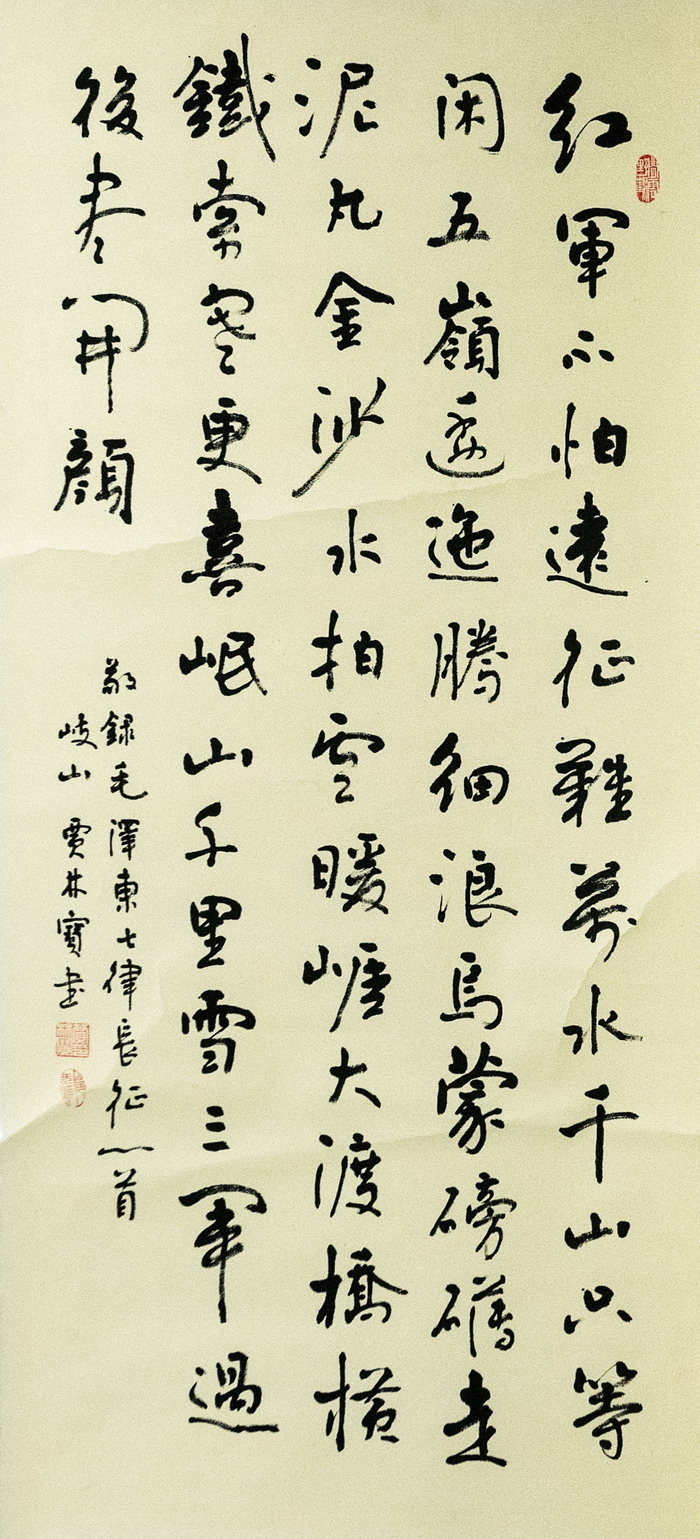 紅軍不怕遠征難萬水千山只等
閑五嶺逶迤騰細浪烏蒙磅礴走
泥丸金沙水拍雲暖崕大渡橋橫
鐵索寒更喜岷山千里雪三軍過
後尽開顏
敬録毛澤東七律長征一首
岐山賈林寶書